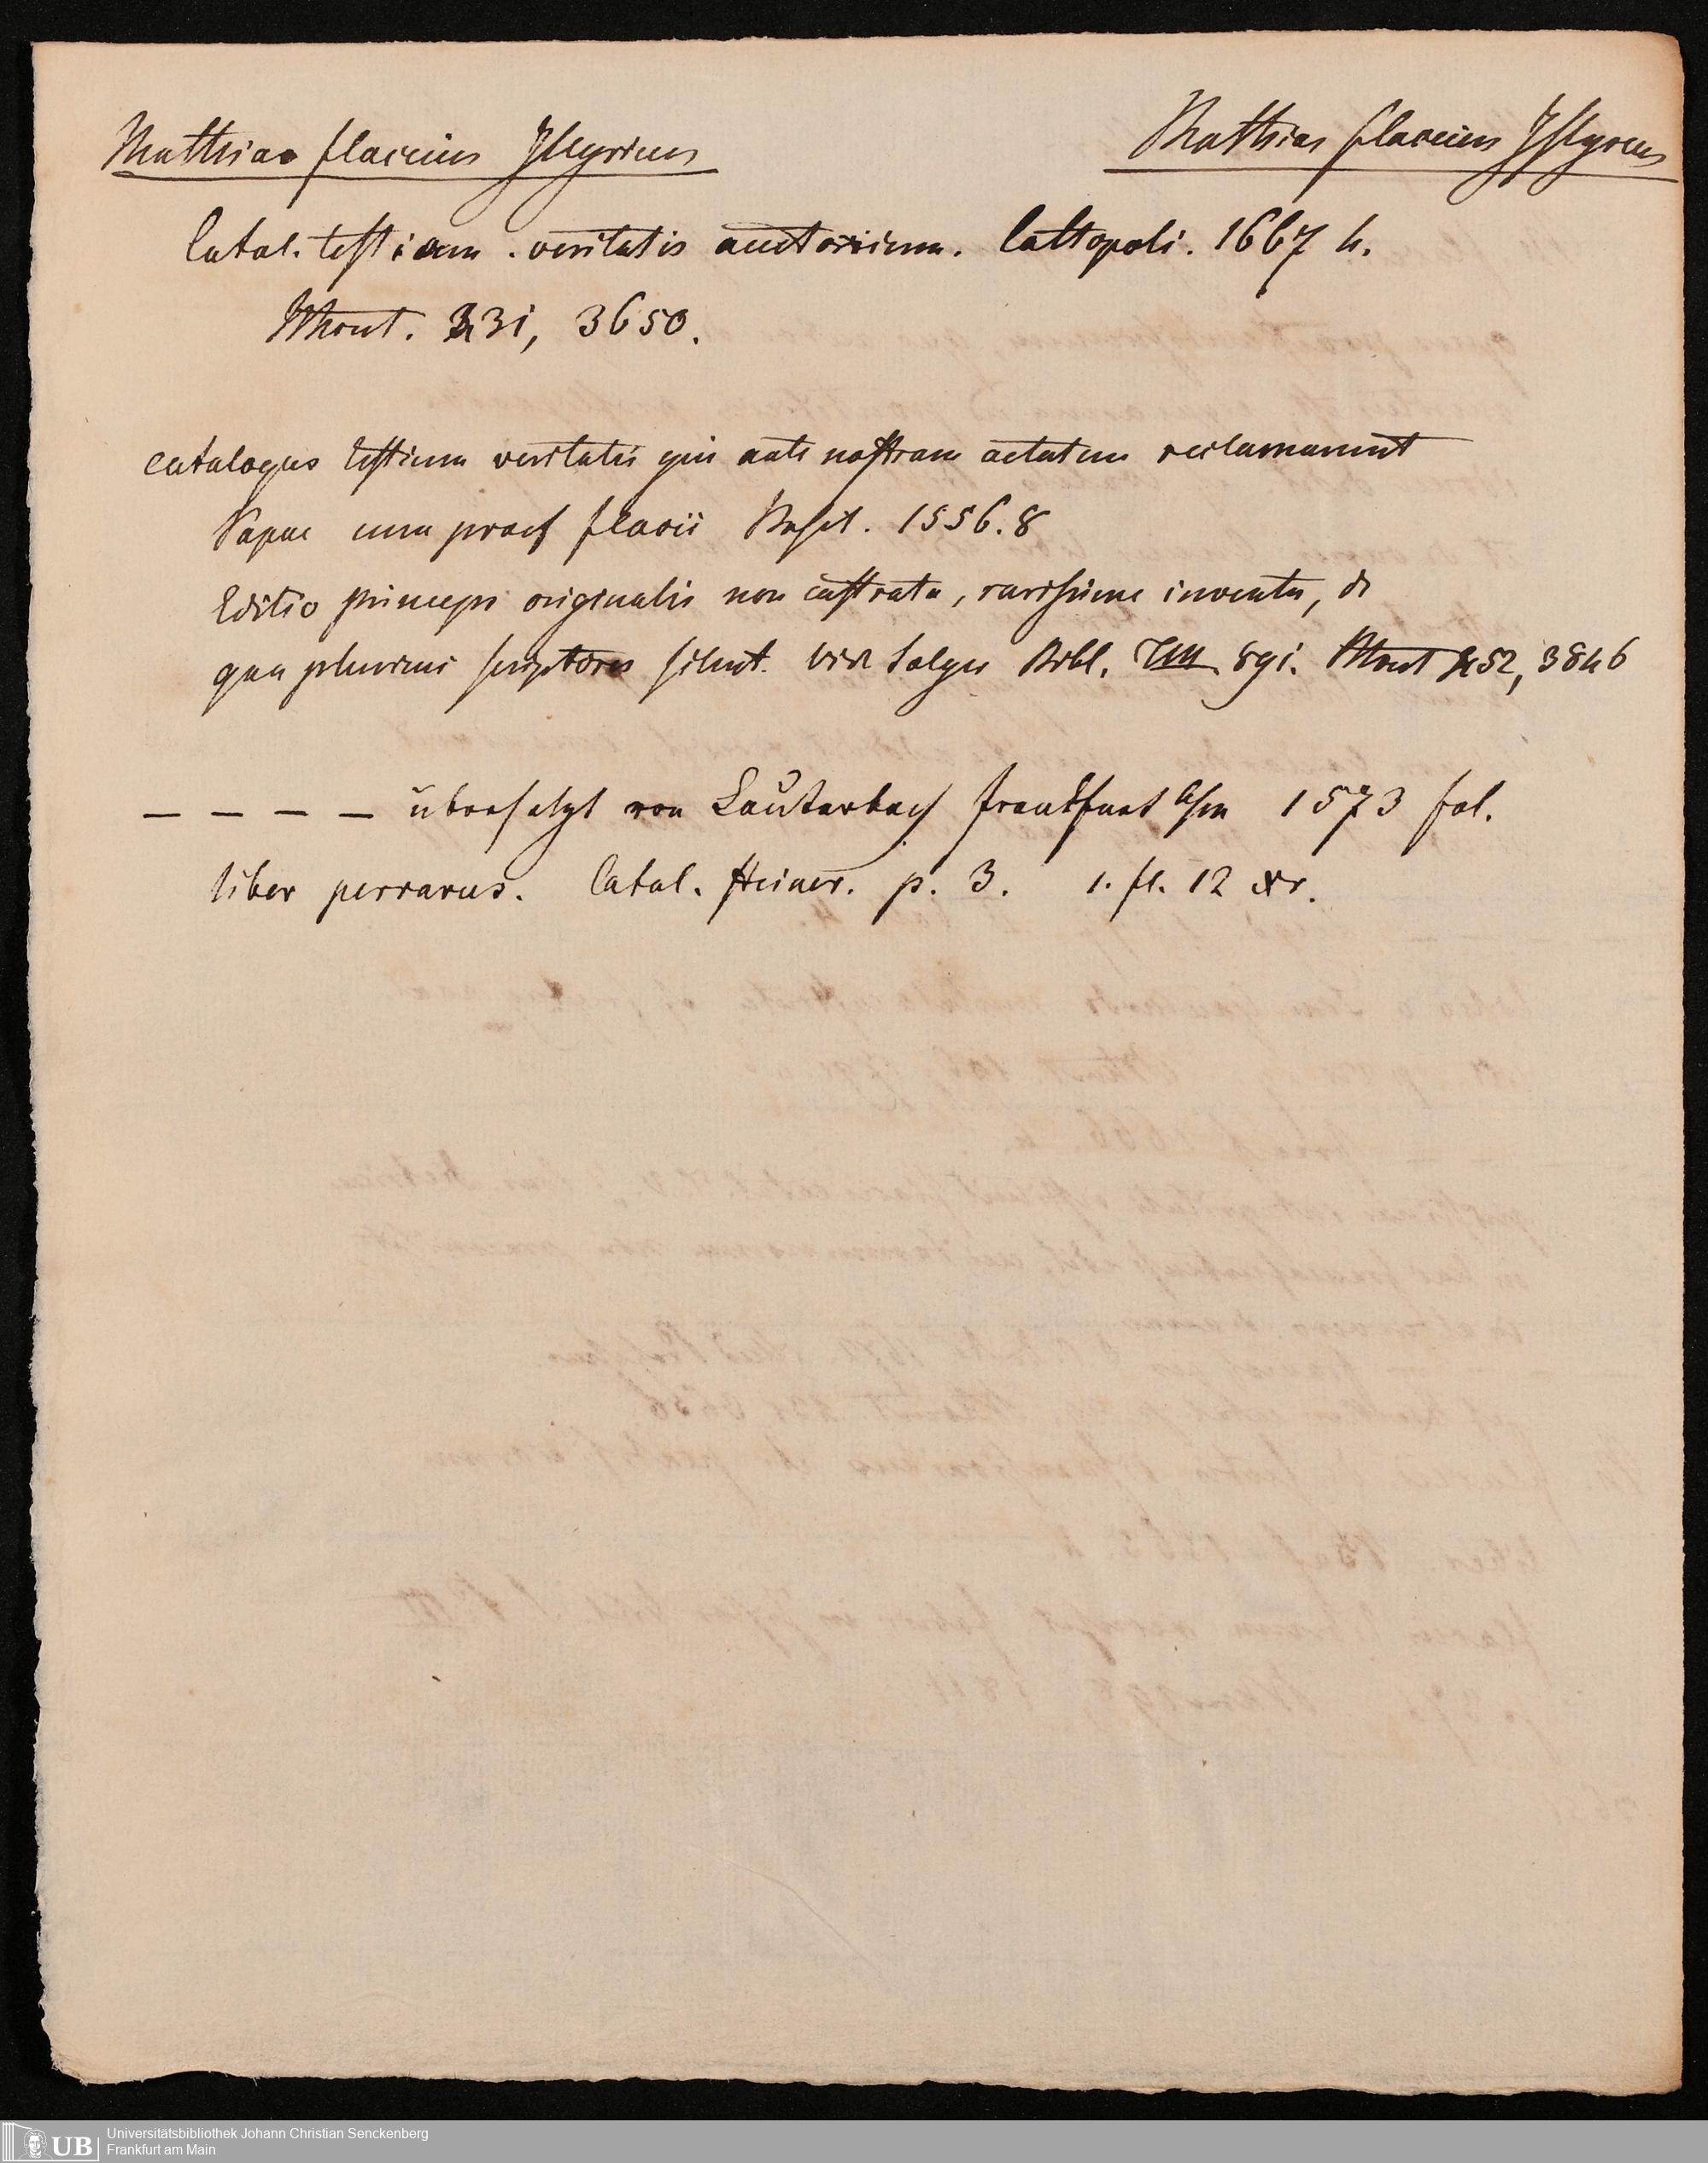 Mathias Flaccius Jllyricus
Mathias Flaccius Jllyricus
Catal. testium veritatis auctarium. Cattopoli. 1667 4.
Mont. 331, 3650.
catalogus testium veritatis qui ante nostram aetatem reclamarunt
Papae cum praef Flacii Basil. 1556. 8
Editio princeps originalis non castrata, rarissime inventa, de
qua plurimi scriptores silent. Vid Salger Bibl. 891. Mont 452, 3846
— — — — übersetzt von Lauterbach Frankfurt a/m 1573 fol.
liber perrarus. Catal. Heiner. p. 3. 1. fl. 12 xr.
UB
Universitätsbibliothek Johann Christian Senckenberg
Frankfurt am Main